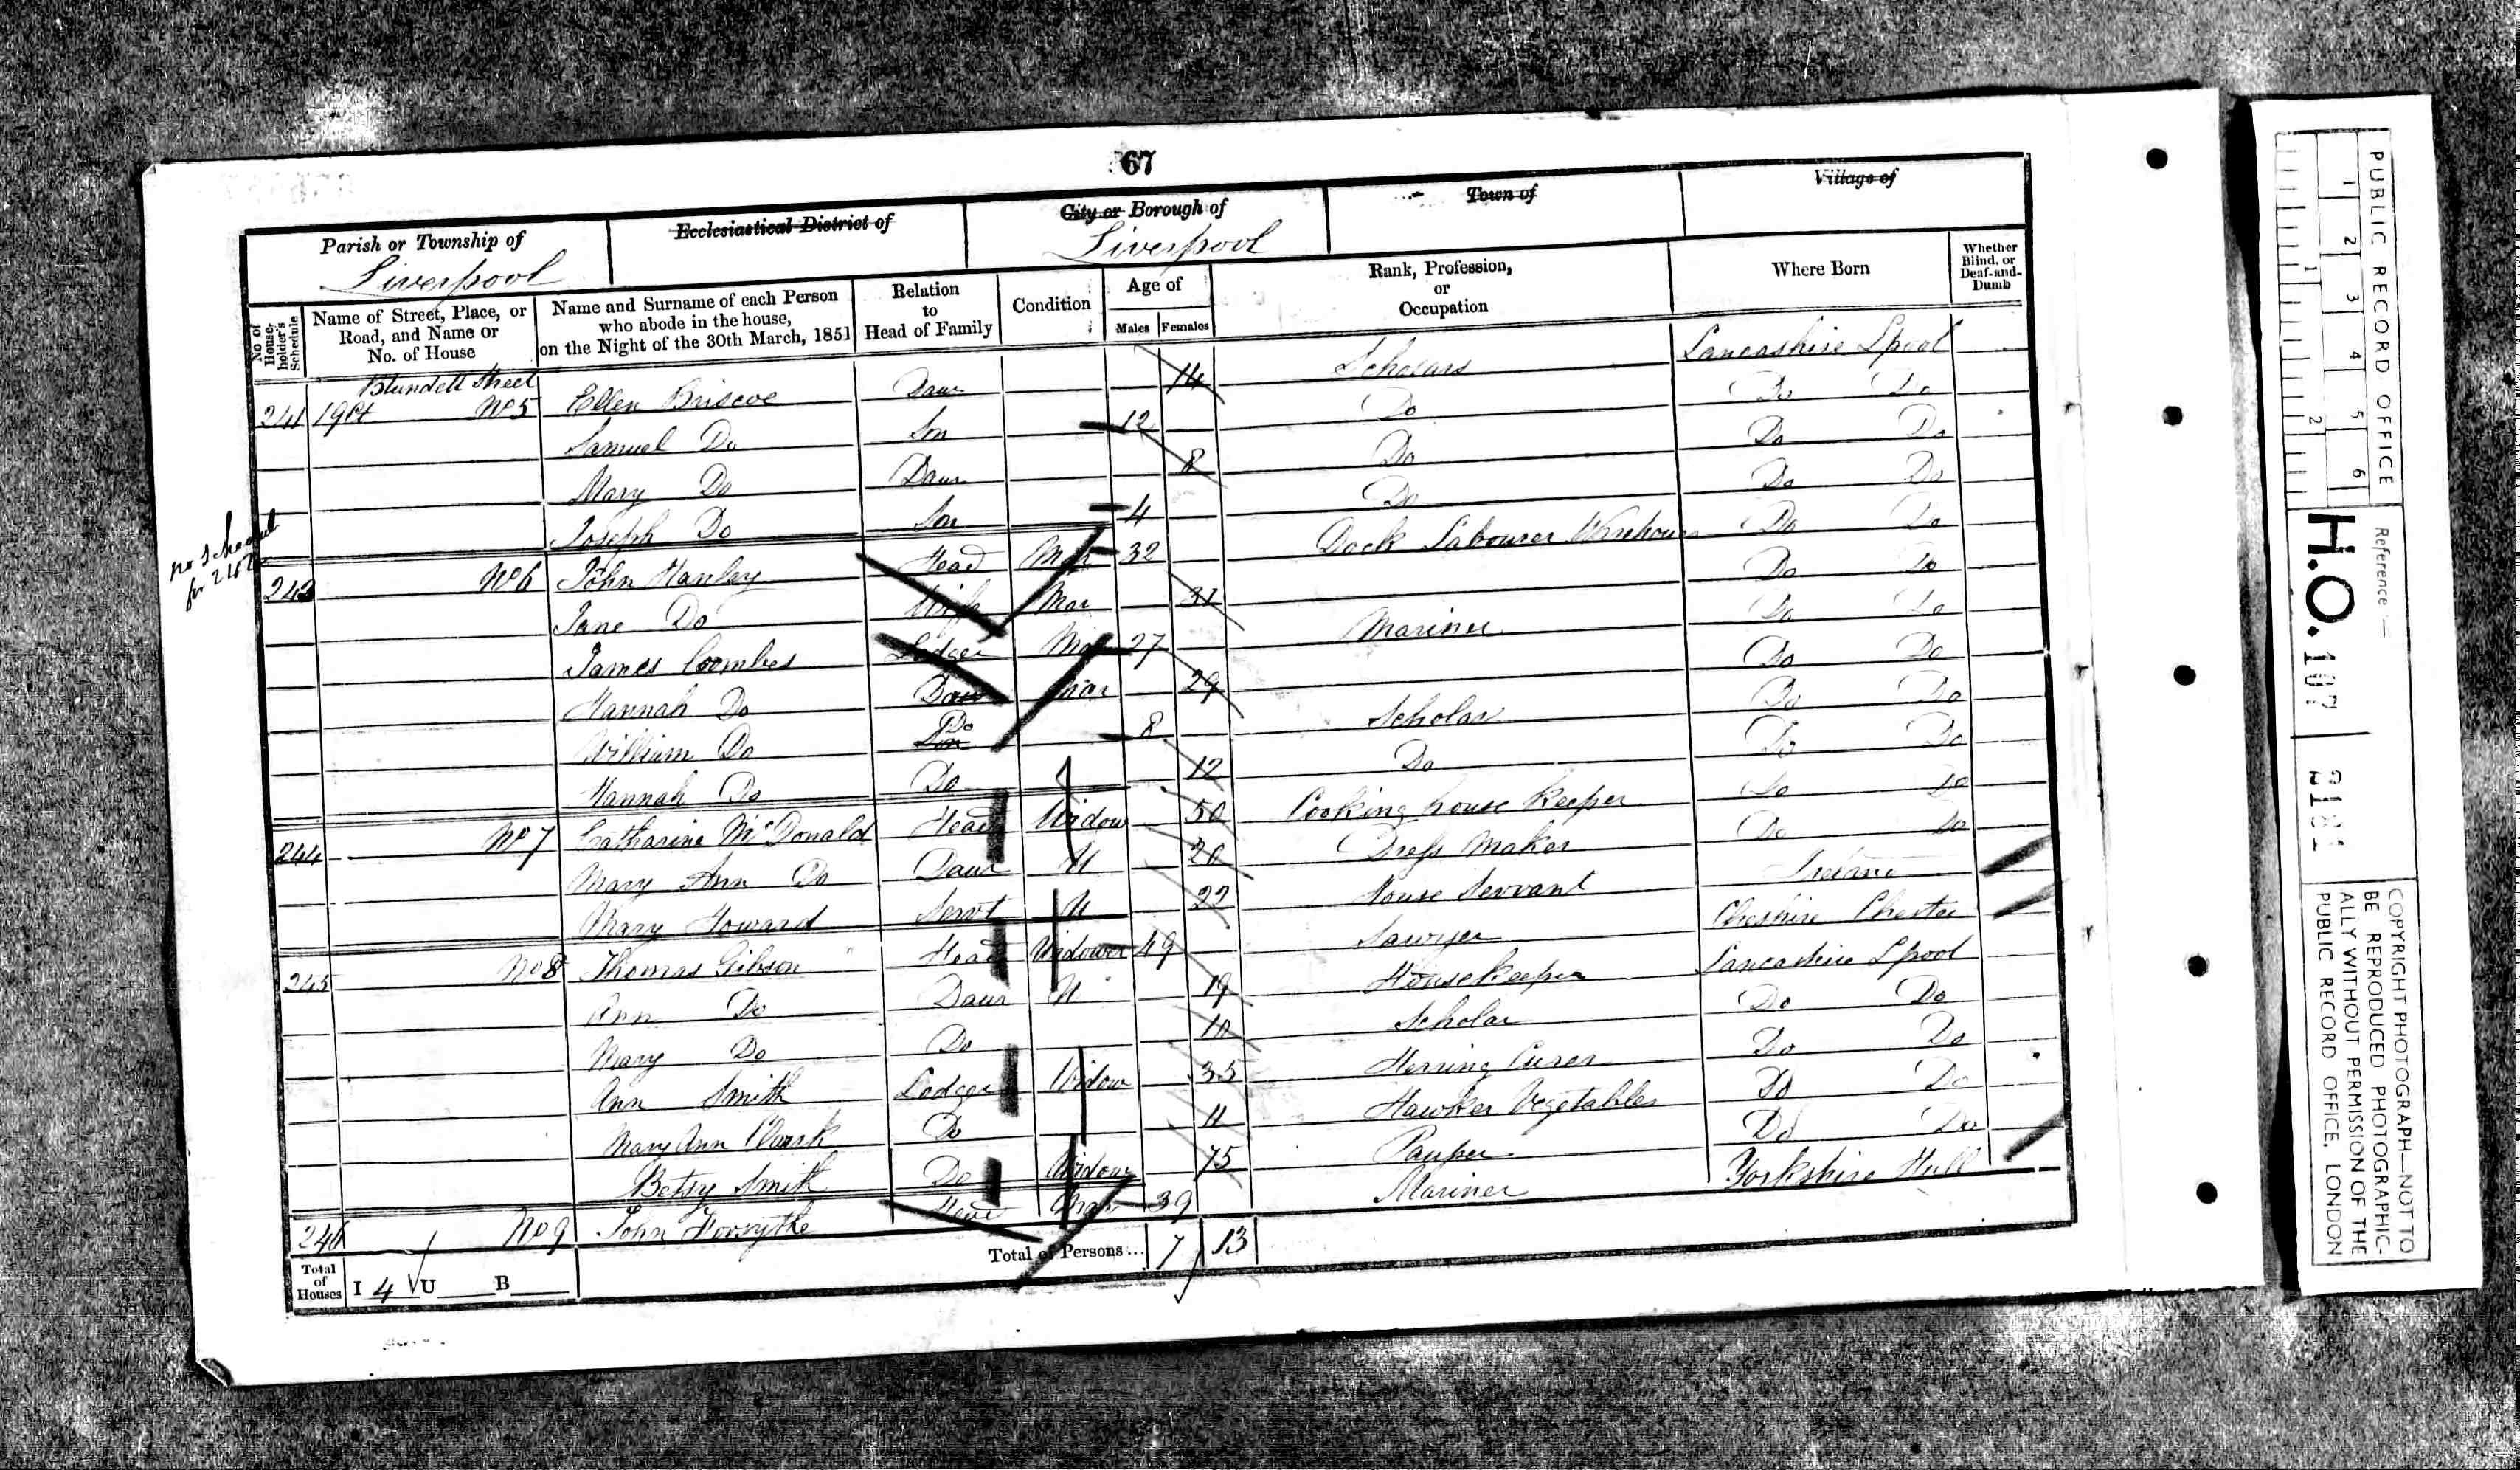 67
Parish or Township of
Liverpool
Ecclesiastical District of
City or Borough of
Liverpool
Town of
Village of
No. of House-holder's Schedule
Name of Street, Place, or Road, and Name or No. of House
Name and Surname of each Person who abode in the house, on the Night of the 30th March, 1851
Relation to Head of Family
Condition
Age of
Males Females
Rank, Profession, or Occupation
Where Born
Whether Blind, or Deaf-and-Dumb
Blundell Street
241 19 Ct No 5 Ellen Briscoe Daur 14 Scholars Lancashire Lpool
Samuel Do Son 12 Do Do Do
Mary Do Daur 8 Do Do Do
Joseph Do Son 4 Do Do Do
no Schedule for 242
243 No 6 John Manley Head Mar 32 Dock Labourer Warehouse Do Do
Jane Do Wife Mar 31 Do Do
James Coombes Lodger Mar 27 Mariner Do Do
Hannah Do Daur Mar 29 Do Do
William Do Son Do 8 Scholar Do Do
Hannah Do Do 12 Do Do Do
244 No 7 Catharine McDonald Head Widow 50 Cooking house Keeper Do Do
Mary Ann Do Daur U 20 Dress Maker Do Do
Mary Howard Servt U 22 House Servant Ireland
245 No 8 Thomas Gibson Head Widower 49 Sawyer Cheshire Chester
Ann Do Daur U 19 Housekeeper Lancashire Lpool
Mary Do Do 10 Scholar Do Do
Ann Smith Lodger Widow 35 Herring Curer Do Do
Mary Ann Clark Do 11 Hawker Vegetables Do Do
Betsy Smith Do Widow 75 Pauper Do Do
246 No 9 John Forsythe Head Mar 39 Mariner Yorkshire Hull
Total of Houses I 4 U B
Total of Persons... 7 13
PUBLIC RECORD OFFICE
1 2 3 4 5 6
1 2
Reference:—
H.O. 107 2181
COPYRIGHT PHOTOGRAPH—NOT TO
BE REPRODUCED PHOTOGRAPHIC-
ALLY WITHOUT PERMISSION OF THE
PUBLIC RECORD OFFICE, LONDON